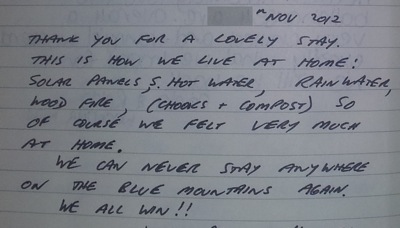 TH NOV 2012
THANK YOU FOR A LOVELY STAY.
THIS IS HOW WE LIVE AT HOME:
SOLAR PANELS, S. HOT WATER, RAINWATER,
WOOD FIRE, (CHOOKS + COMPOST) SO
OF COURSE WE FELT VERY MUCH
AT HOME.
WE CAN NEVER STAY ANYWHERE
ON THE BLUE MOUNTAINS AGAIN.
WE ALL WIN!!